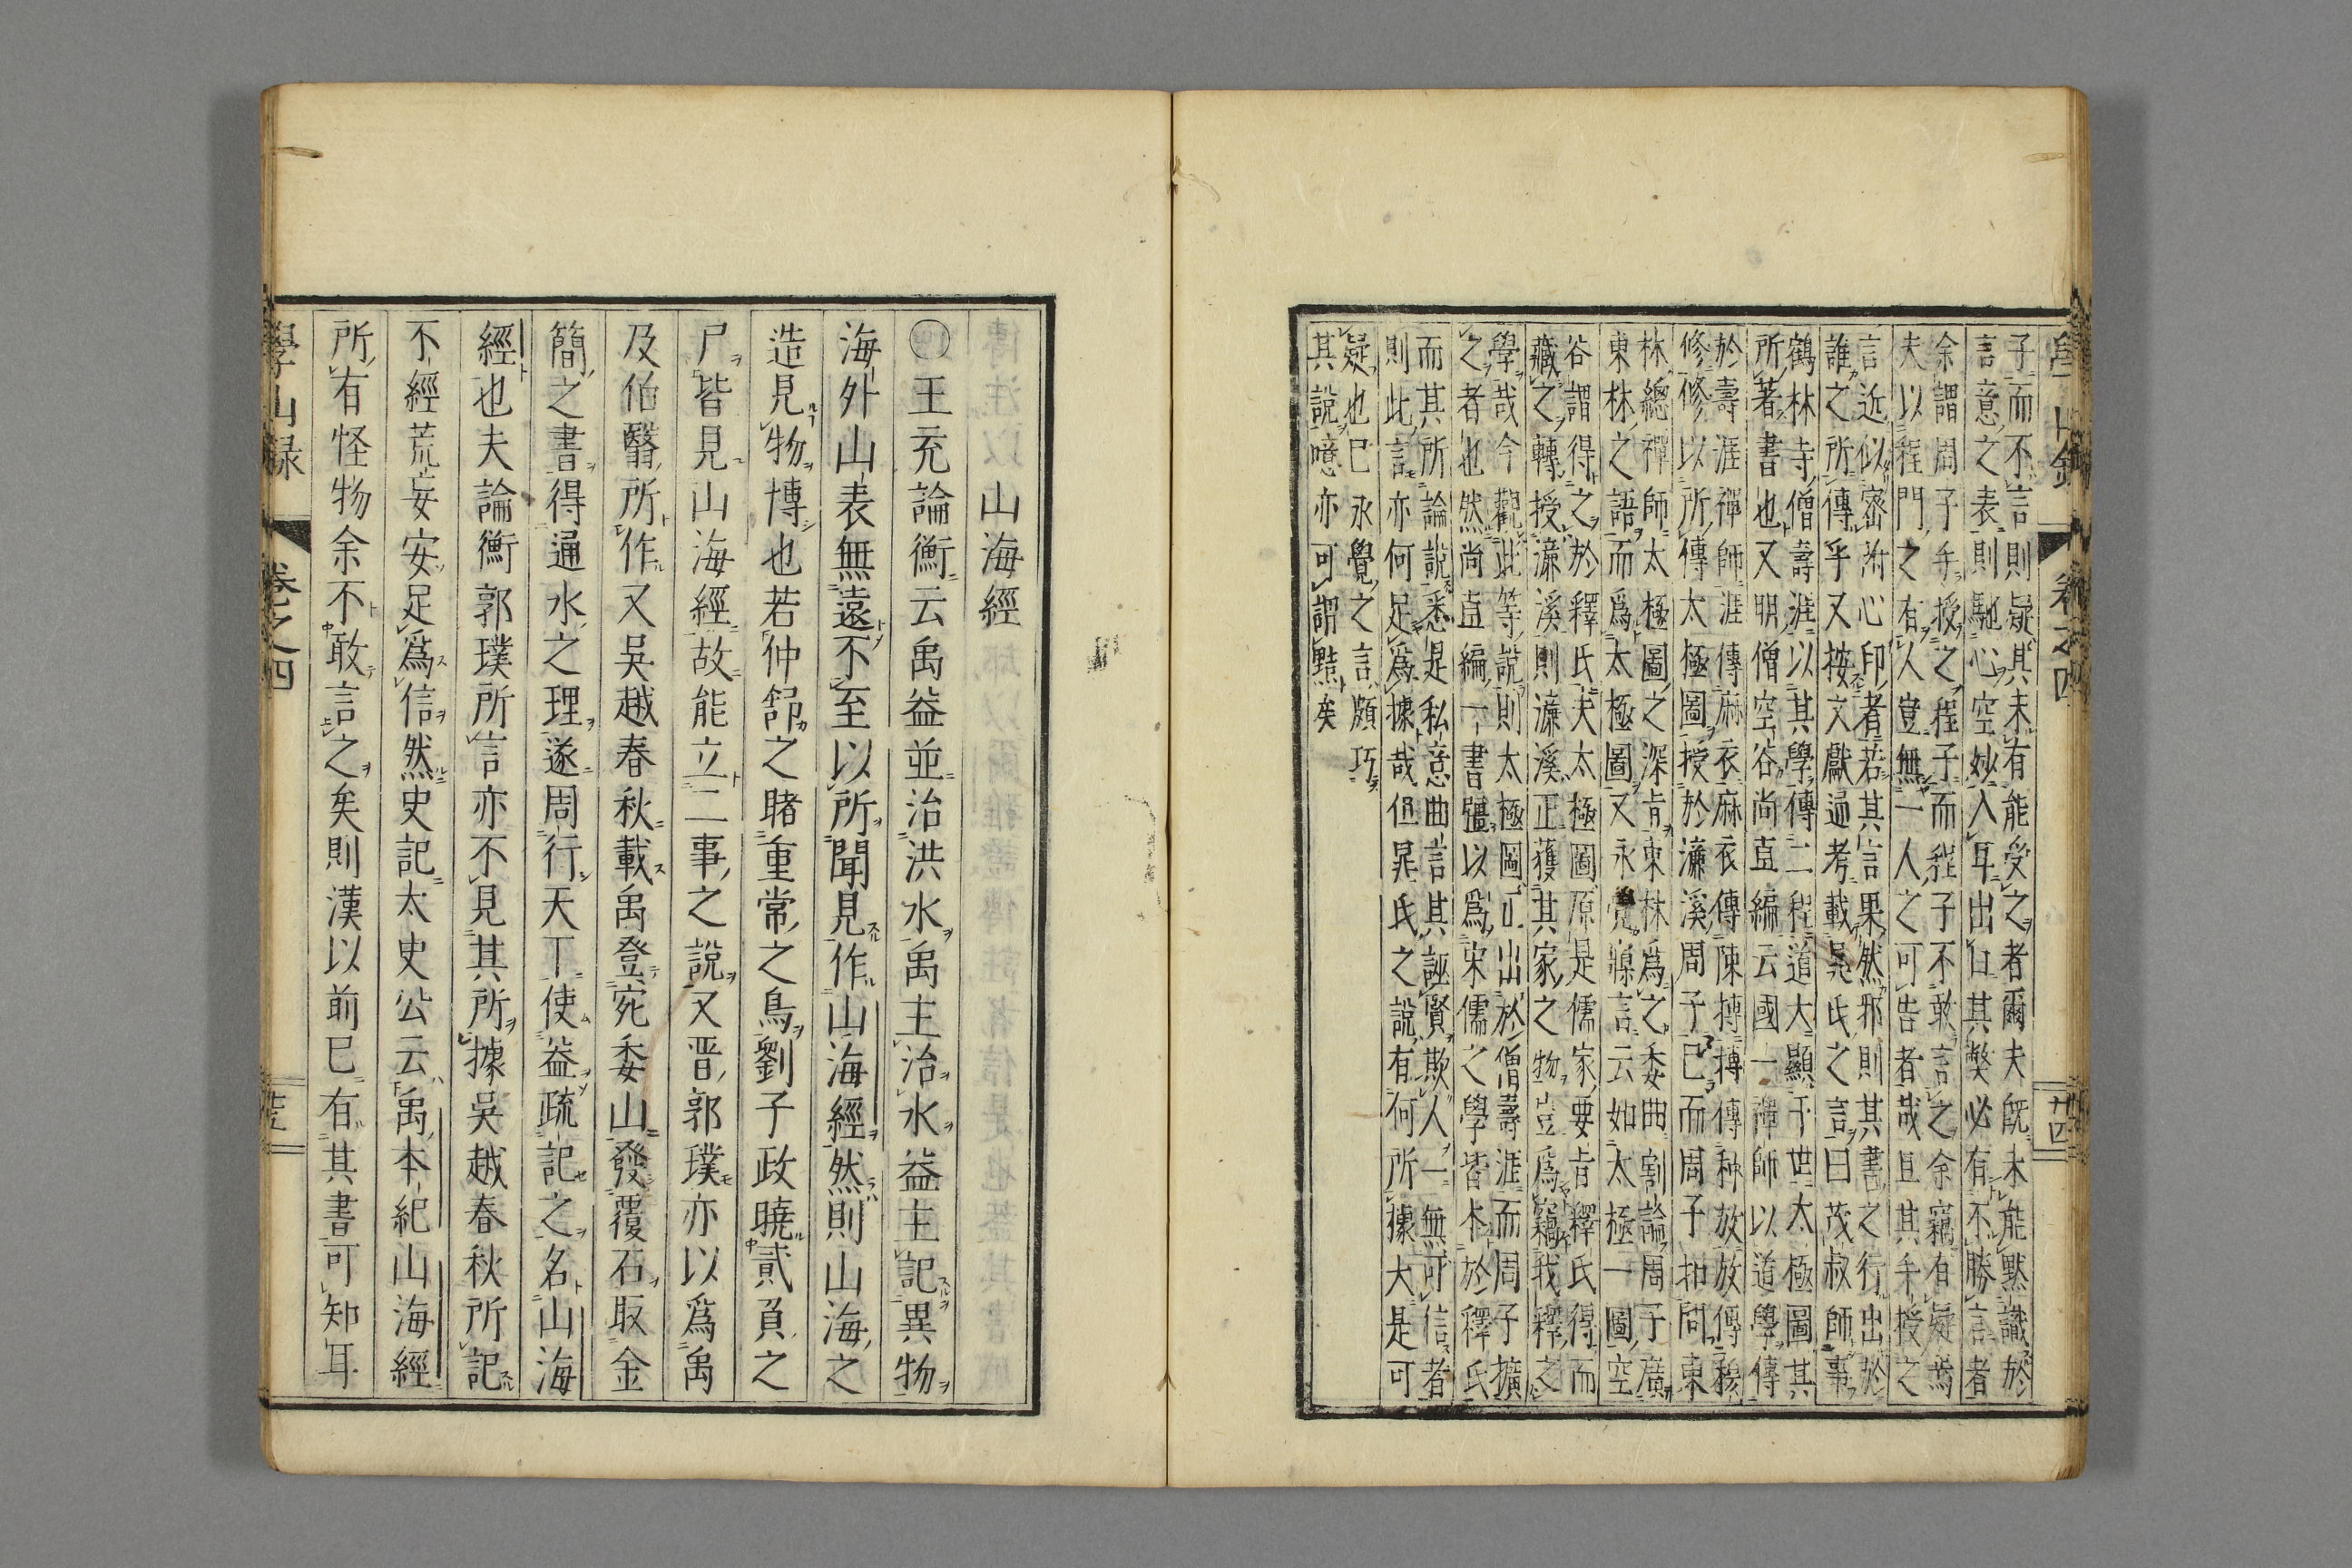 學山錄
卷之四
廿四
子而不言則疑其未有能受之者爾夫既未能黙識於
言意之表則馳心空妙入耳出口其弊必有不勝言者
余謂周子手授之程子而程子不敢言之余竊有疑焉
夫以程門之有人豈無一人之可告者哉且其手授之
言近似密附心印者若其言果然邪則其書之行出於
誰之所傳乎又按文獻通考載吳氏之言曰茂叔師事
鶴林寺僧壽涯以其學傳二程道大顯于世太極圖其
所著書也又明僧空谷尚直編云國一禪師以道學傳
於壽涯禪師涯傳麻衣麻衣傳陳摶摶傳种放放傳穆
修修以所傳太極圖授於濂溪周子已而周子扣問東
林總禪師太極圖之深旨東林爲之委曲剖論周子廣
東林之語而爲太極圖又永覺寱言云如太極一圖空
谷謂得之於釋氏夫太極圖原是儒家要旨釋氏得而
藏之轉授濂溪則濂溪正獲其家之物豈爲竊我釋之
學哉今觀此等說則太極圖正出於僧壽涯而周子擴
之者也然尚直編一書盡以爲宋儒之學皆本於釋氏
而其所論說悉是私意曲言其誣賢欺人一無可信者
則此言亦何足爲據哉但晁氏之說有何所據大是可
疑也已永覺之言頗巧
其說噫亦可謂黠矣
山海經
○王充論衡云禹益並治洪水禹主治水益主記異物
海外山表無遠不至以所聞見作山海經然則山海之
造見物博也若仲舒之睹重常之鳥劉子政曉貳負之
尸皆見山海經故能立二事之說又晋郭璞亦以爲禹
及伯翳所作又吳越春秋載禹登宛委山發覆石取金
簡之書得通水之理遂周行天下使益疏記之名山海
經也夫論衡郭璞所言亦不見其所據吳越春秋所記
不經荒妄安足爲信然史記太史公云禹本紀山海經
所有怪物余不敢言之矣則漢以前已有其書可知耳
學山録
卷之四